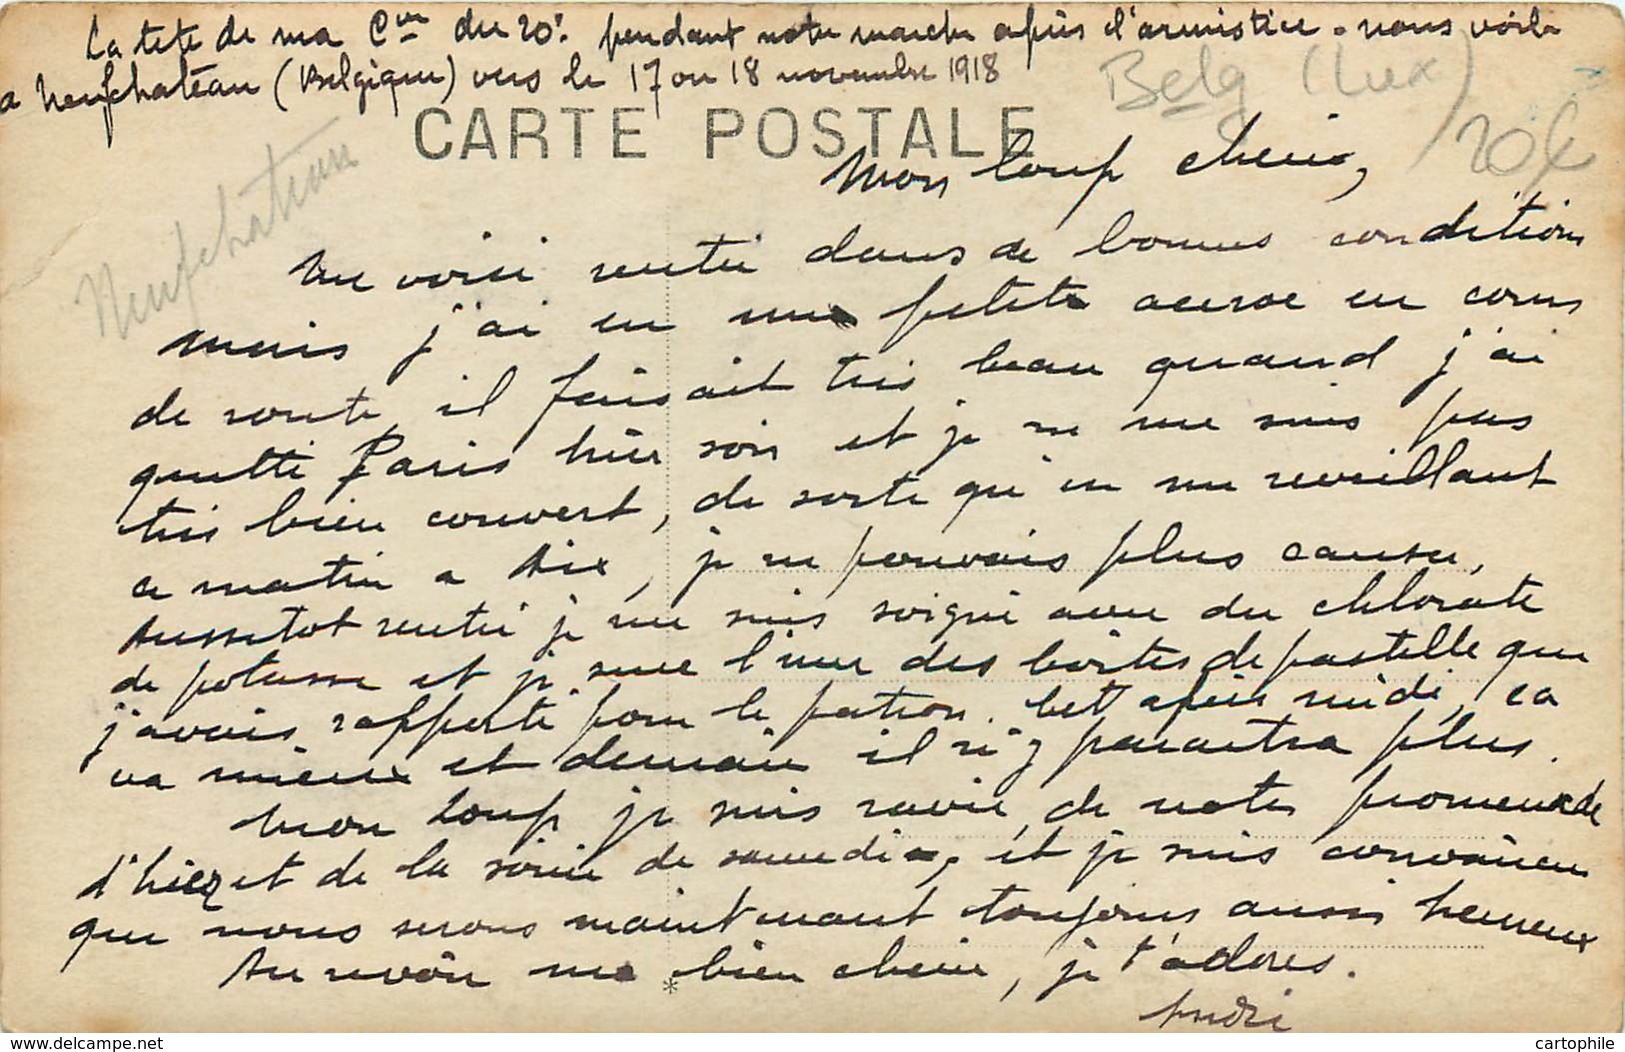 La tete de ma Cie du 20e pendant notre marche après l'armistice. nous voila
a Neufchateau (Belgique) vers le 17 ou 18 novembre 1918
Belg (Lux)
20f
CARTE POSTALE
Neufchateau
Mon loup cherie,
Me voici rentré dans de bonnes conditions
mais j'ai eu une petite acuse en cours
de route, il faisait très beau quand j'ai
quitté Paris hier soir et je ne me suis pas
très bien couvert, de sorte qu'en me reveillant
ce matin a six, je ne pouvais plus causer,
Aussitot rentré je me suis soigné avec du chlorate
de potasse et je suce l'une des boites de pastille que
j'avais rapporté pour le patron. Cet après midi, ca
va mieux et demain il n'y paraitra plus.
Mon loup je suis ravie, de notre promenade
d'hier et de la soirée de samedi, et je suis convaincu
que nous serons maintenant toujours aussi heureux
Au revoir ma bien cherie, je t'adores.
André
*
delcampe.net
cartophile